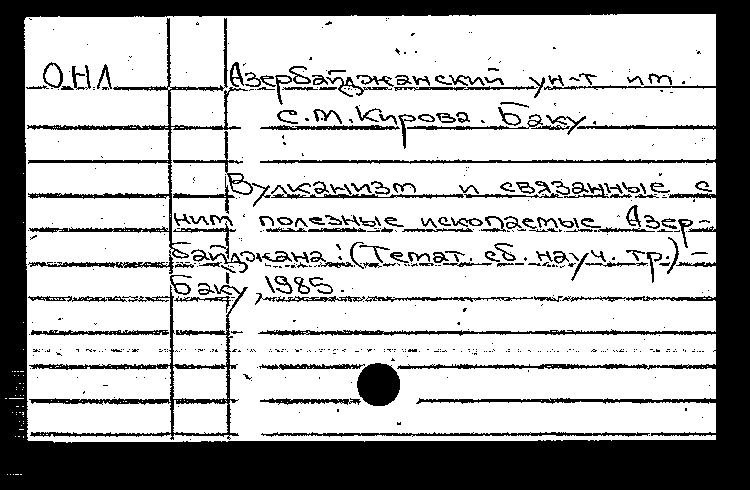 ОНЛ
Азербайджанский ун-т им.
С.М.Кирова. Баку.
Вулканизм и связанные с
ним полезные ископаемые Азер-
байджана: (Темат. сб. науч. тр.) -
Баку, 1985.